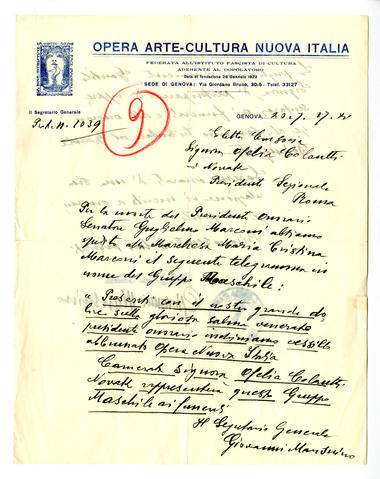 OPERA ARTE-CULTURA NUOVA ITALIA
FEDERATA ALL'ISTITUTO FASCISTA DI CULTURA
ADERENTE AL DOPOLAVORO
Data di fondazione 28 Gennaio 1922
SEDE DI GENOVA: Via Giordano Bruno, 30-5 - Telef. 33127
Il Segretario Generale
GENOVA,
Prot. N. 1039
9
Signora Ofelia Colautti
Novak
Presidente Sezionale
Roma
Per la morte del Presidente onorario
Senatore Guglielmo Marconi abbiamo
spedito alla Marchesa Maria Cristina
Marconi il seguente telegramma in
nome del Gruppo Maschile:
" Presenti con il nostro grande do-
lore sulla gloriosa salma venerato
presidente onorario inchiniamo vessillo
abbrunato Opera Nuova Italia
Camerata Signora Ofelia Colautti
Novak rappresenterà questo Gruppo
Maschile ai funerali
Il Segretario Generale
Giovanni